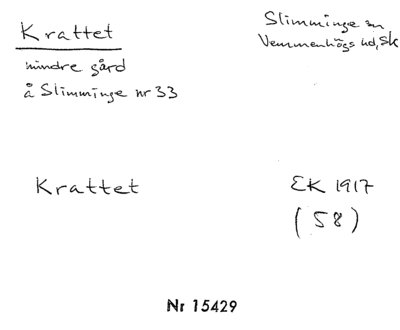 Krattet
mindre gård
å Slimminge nr 33
Slimminge sn
Vemmenhögs hd, Sk
Krattet
EK 1917
(58)
Nr 15429